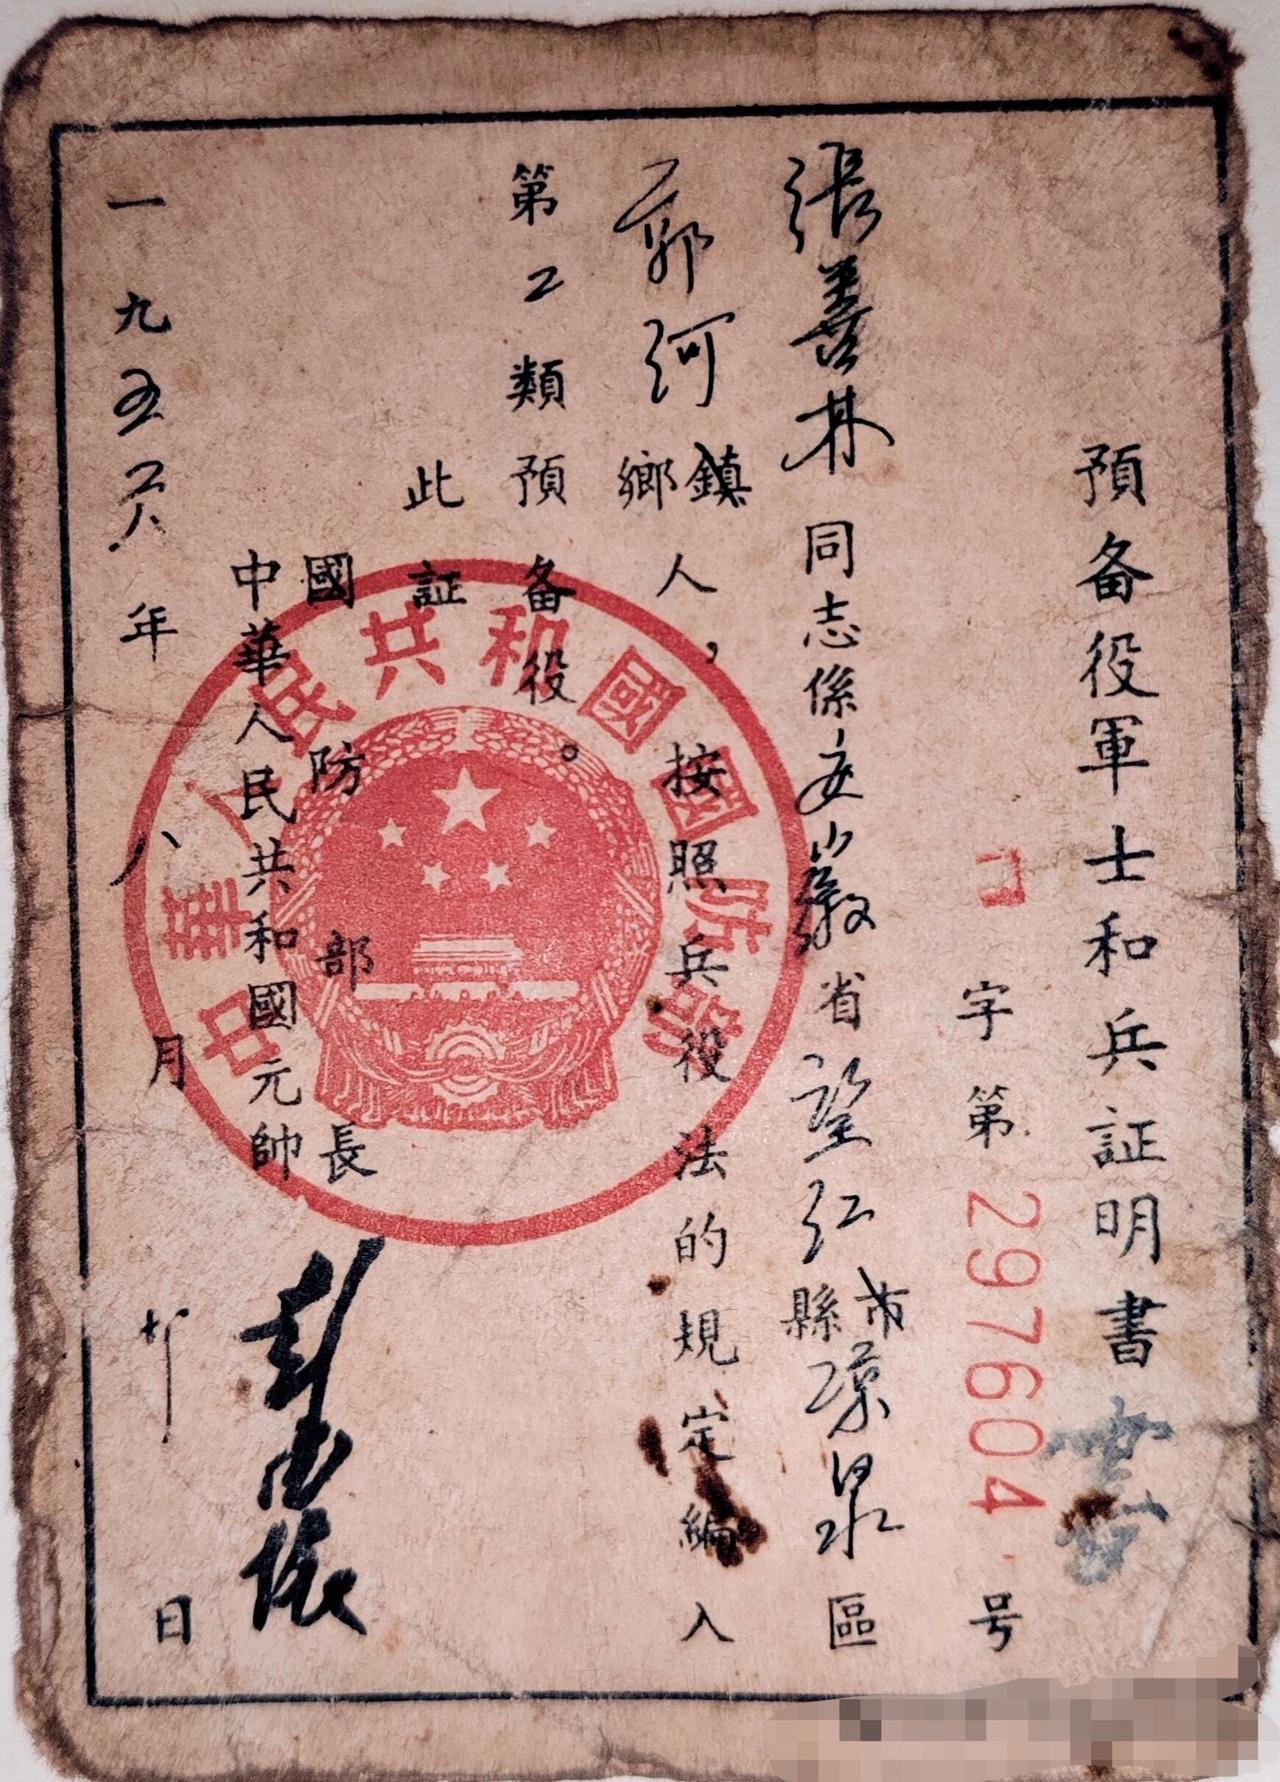 預备役軍士和兵証明書
字第297604号
張善林同志係安徽省望江縣市凉泉區
郭河鄉鎮人，按照兵役法的規定編入
第2類預备役。
此証
國防部長
中華人民共和國元帥 彭德懷
一九五六年八月 日
中華人民共和國國防部